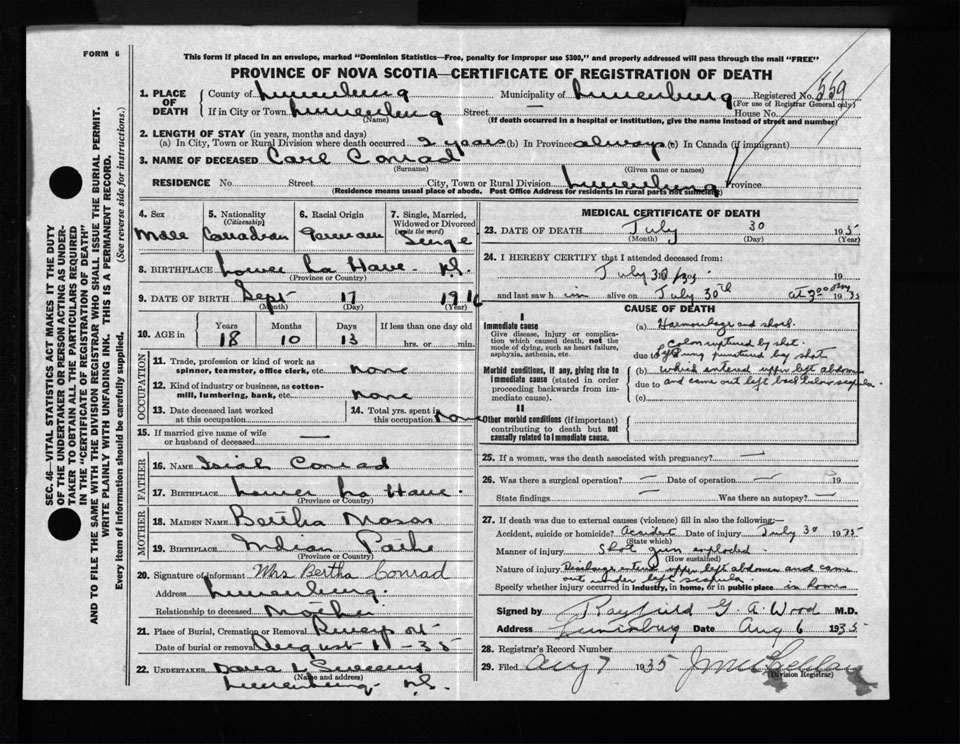 FORM 6
This form if placed in an envelope, marked "Dominion Statistics—Free, penalty for improper use $300," and properly addressed will pass through the mail "FREE"
PROVINCE OF NOVA SCOTIA—CERTIFICATE OF REGISTRATION OF DEATH
559
1. PLACE OF DEATH
County of Lunenburg Municipality of Lunenburg Registered No.
(For use of Registrar General only)
If in City or Town Lunenburg Street — House No.
(Name) (If death occurred in a hospital or institution, give the name instead of street and number)
2. LENGTH OF STAY (in years, months and days)
(a) In City, Town or Rural Division where death occurred 2 years (b) In Province always (c) In Canada (if immigrant)
3. NAME OF DECEASED Carl Conrad
(Surname) (Given name or names)
RESIDENCE No. Street City, Town or Rural Division Lunenburg Province
(Residence means usual place of abode. Post Office Address for residents in rural parts not sufficient)
SEC. 46—VITAL STATISTICS ACT MAKES IT THE DUTY
OF THE UNDERTAKER OR PERSON ACTING AS UNDER-
TAKER TO OBTAIN ALL THE PARTICULARS REQUIRED
IN THE "CERTIFICATE OF REGISTRATION OF DEATH"
AND TO FILE THE SAME WITH THE DIVISION REGISTRAR WHO SHALL ISSUE THE BURIAL PERMIT.
WRITE PLAINLY WITH UNFADING INK. THIS IS A PERMANENT RECORD.
Every item of information should be carefully supplied. (See reverse side for instructions.)
4. Sex
Male
5. Nationality
(Citizenship)
Canadian
6. Racial Origin
German
7. Single, Married,
Widowed or Divorced
(write the word)
Single
8. BIRTHPLACE Lower La Have. N.S.
(Province or Country)
9. DATE OF BIRTH Sept 17 1916
(Month) (Day) (Year)
10. AGE in
Years Months Days If less than one day old
18 10 13 hrs. or min.
OCCUPATION
11. Trade, profession or kind of work as
spinner, teamster, office clerk, etc. none
12. Kind of industry or business, as cotton-
mill, lumbering, bank, etc. none
13. Date deceased last worked
at this occupation
14. Total yrs. spent in
this occupation none
15. If married give name of wife
or husband of deceased —
FATHER
16. NAME Isiah Conrad
17. BIRTHPLACE Lower La Have.
(Province or Country)
MOTHER
18. MAIDEN NAME Bertha Mason
19. BIRTHPLACE Indian Path
(Province or Country)
20. Signature of informant Mrs Bertha Conrad
Address Lunenburg.
Relationship to deceased Mother
21. Place of Burial, Cremation or Removal
Date of burial or removal August 1 - 35
22. UNDERTAKER
(Name and address)
Lunenburg. N.S.
MEDICAL CERTIFICATE OF DEATH
23. DATE OF DEATH July 30 1935
(Month) (Day) (Year)
24. I HEREBY CERTIFY that I attended deceased from:
July 30/35 19
and last saw h im alive on July 30th at 3:00 1935
CAUSE OF DEATH
I
Immediate cause
Give disease, injury or complica-
tion which caused death, not the
mode of dying, such as heart failure,
asphyxia, asthenia, etc.
Morbid conditions, if any, giving rise to
immediate cause (stated in order
proceeding backwards from im-
mediate cause).
II
Other morbid conditions (if important)
contributing to death but not
causally related to immediate cause.
(a) Haemorrhage and shock.
Colon ruptured by shot.
due to Lung punctured by shot
(b) which entered upper left abdomen
due to and came out left back below scapula.
(c)
25. If a woman, was the death associated with pregnancy? —
26. Was there a surgical operation? — Date of operation — 19
State findings — Was there an autopsy? —
27. If death was due to external causes (violence) fill in also the following:—
Accident, suicide or homicide? Accident Date of injury July 30 1935
(State which)
Manner of injury Shot gun exploded.
(How sustained)
Nature of injury Discharge entered upper left abdomen and came
out under left scapula.
Specify whether injury occurred in industry, in home, or in public place in home
Signed by Rayfield G. A. Wood M.D.
Address Lunenburg Date Aug 6 1935
28. Registrar's Record Number
29. Filed Aug 7 1935
(Division Registrar)